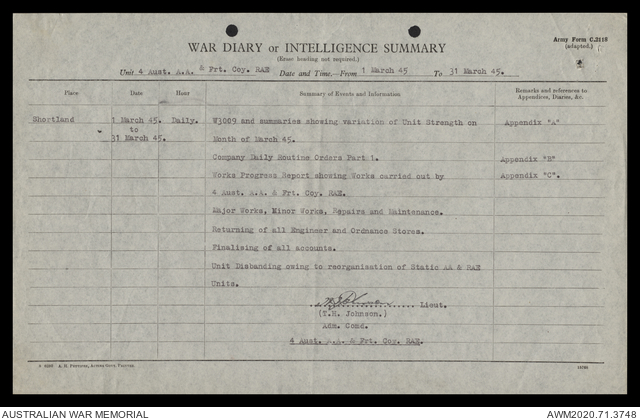 Army Form C.2118
(adapted.)
WAR DIARY or INTELLIGENCE SUMMARY
(Erase heading not required.)
Unit 4 Aust. A.A. & Frt. Coy. RAE Date and Time,—From 1 March 45 To 31 March 45.
Place Date Hour Summary of Events and Information Remarks and references to Appendices, Diaries, &c.
Shortland 1 March 45. Daily. W3009 and summaries showing variation of Unit Strength on Appendix "A"
to
31 March 45. Month of March 45.
Company Daily Routine Orders Part 1. Appendix "B"
Works Progress Report showing Works carried out by Appendix "C".
4 Aust. A.A. & Frt. Coy. RAE.
Major Works, Minor Works, Repairs and Maintenance.
Returning of all Engineer and Ordnance Stores.
Finalising of all accounts.
Unit Disbanding owing to reorganisation of Static AA & RAE
Units.
Lieut.
(T.H. Johnson.)
Adm. Comd.
4 Aust. A.A. & Frt. Coy. RAE.
AUSTRALIAN WAR MEMORIAL AWM2020.71.3748